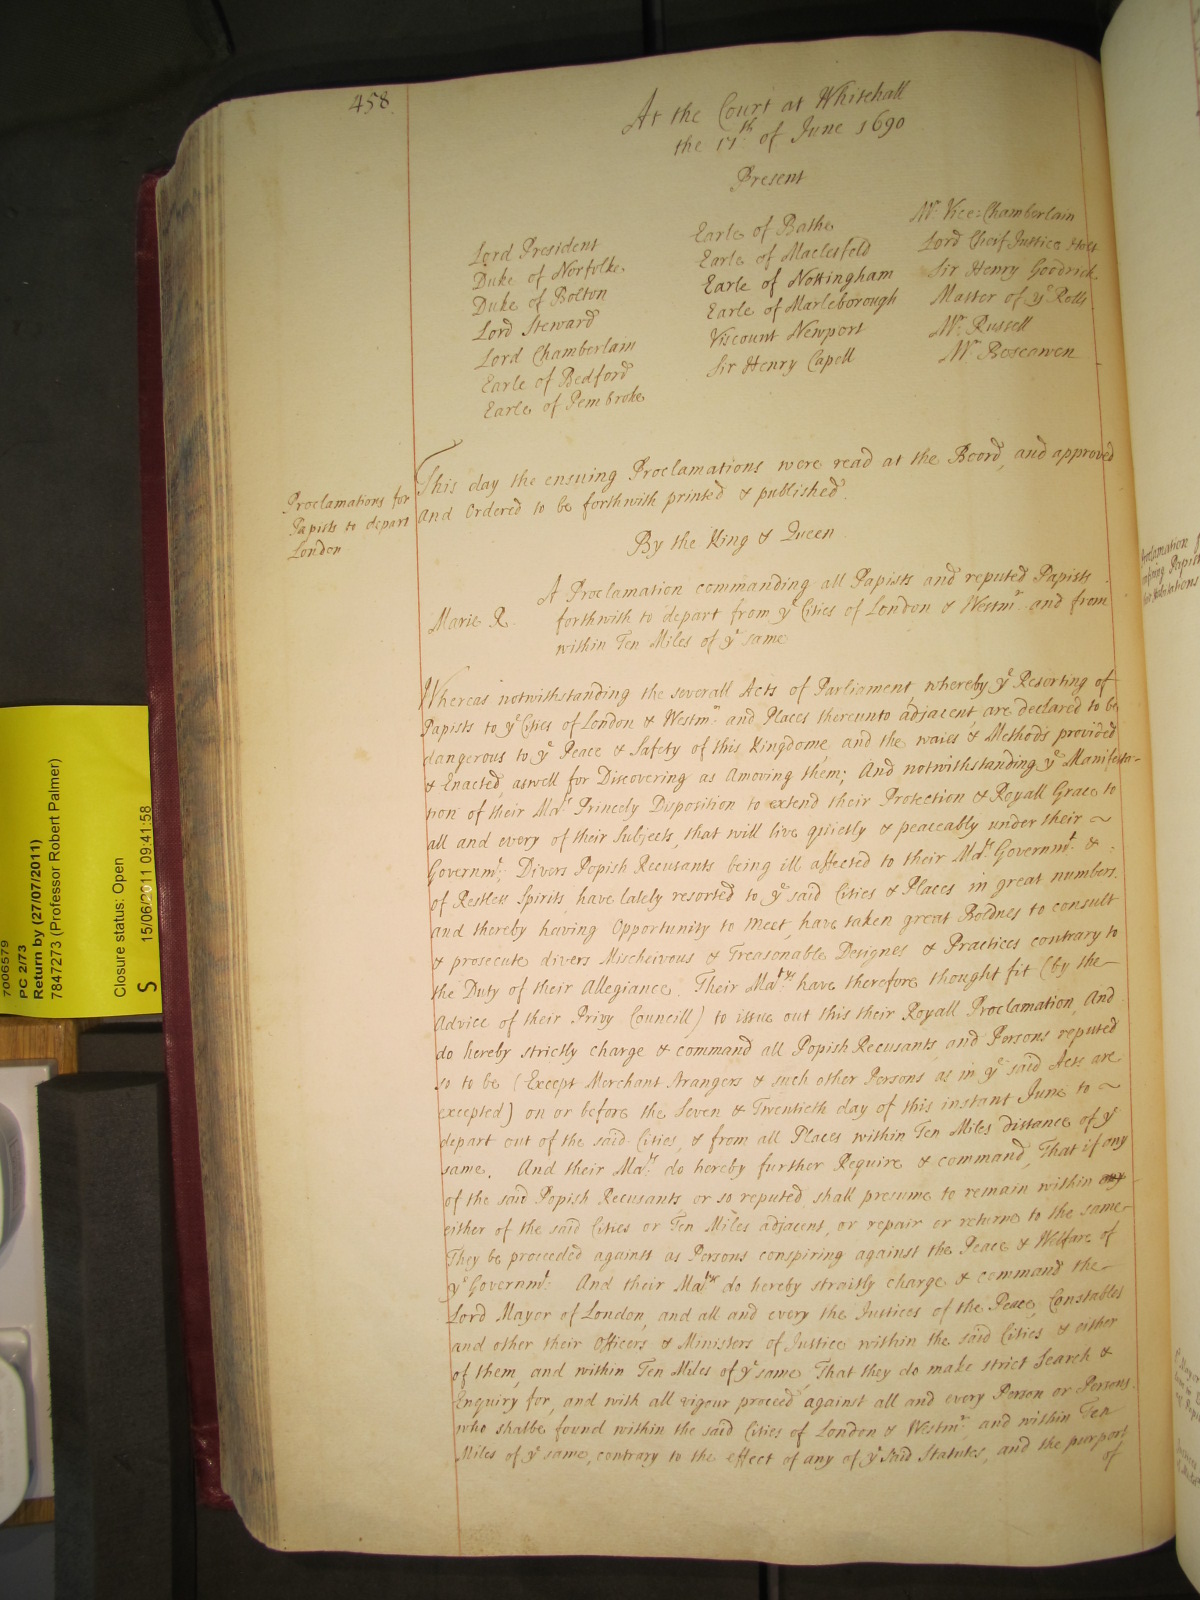 458
At the Court at Whitehall
the 17th of June 1690
Present
Lord President
Duke of Norfolke
Duke of Bolton
Lord Steward
Lord Chamberlain
Earle of Bedford
Earle of Pembroke
Earle of Bathe
Earle of Maclesfeld
Earle of Nottingham
Earle of Marleborough
Viscount Newport
Sir Henry Capell
Mr Vice-Chamberlain
Lord Cheif Justice Holt
Sir Henry Goodrick
Master of ye Rolls
Mr Russell
Mr Boscawen
Proclamations for
Papists to depart
London
This day the ensuing Proclamations were read at the Boord, and approved
And Ordered to be forthwith printed & published.
By the King & Queen
A Proclamation commanding all Papists and reputed Papists
Marie R. forthwith to depart from ye Cities of London & Westmr and from
within Ten Miles of ye same
Whereas notwithstanding the severall Acts of Parliament, whereby ye Resorting of
Papists to ye Cities of London & Westmr and Places thereunto adjacent, are declared to be
dangerous to ye Peace & Safety of this Kingdome, and the waies & Methods provided
& Enacted, aswell for Discovering as Amoving them; And notwithstanding ye Manifesta-
tion of their Mats Princely Disposition to extend their Protection & Royall Grace to
all and every of their Subjects, that will live quietly & peaceably under their ~
Governmt; Divers Popish Recusants being ill affected to their Mats Governmt &
of Restless Spirits, have lately resorted to ye said Cities & Places in great numbers,
and thereby having Opportunity to meet, have taken great Boldnes to consult
& prosecute divers Mischeivous & Treasonable Designes & Practices contrary to
the Duty of their Allegiance. Their Maties have therefore thought fit (by the
Advice of their Privy Councill) to issue out this their Royall Proclamation, And
do hereby strictly charge & command all Popish Recusants and Persons reputed
so to be (Except Merchant Strangers & such other Persons as in ye said Acts are
excepted) on or before the Seven & Twentieth day of this instant June to ~
depart out of the said Cities, & from all Places within Ten Miles distance of ye
same. And their Mats do hereby further Require & command, That if any
of the said Popish Recusants or so reputed shall presume to remain within any
either of the said Cities or Ten Miles adjacent, or repair or returne to the same
They be proceeded against as Persons conspiring against the Peace & Welfare of
ye Governmt. And their Maties do hereby straitly charge & command the
Lord Mayor of London, and all and every the Justices of the Peace, Constables
and other their Officers & Ministers of Justice within the said Cities & either
of them, and within Ten Miles of ye same, That they do make strict Search &
Enquiry for, and with all vigour proceed against all and every Person or Persons
who shalbe found within the said Cities of London & Westmr and within Ten
Miles of ye same, contrary to the effect of any of ye said Statutes, and the purport
of
7006579
PC 2/73
Return by (27/07/2011)
7847273 (Professor Robert Palmer)
Closure status: Open
S 15/06/2011 09:41:58